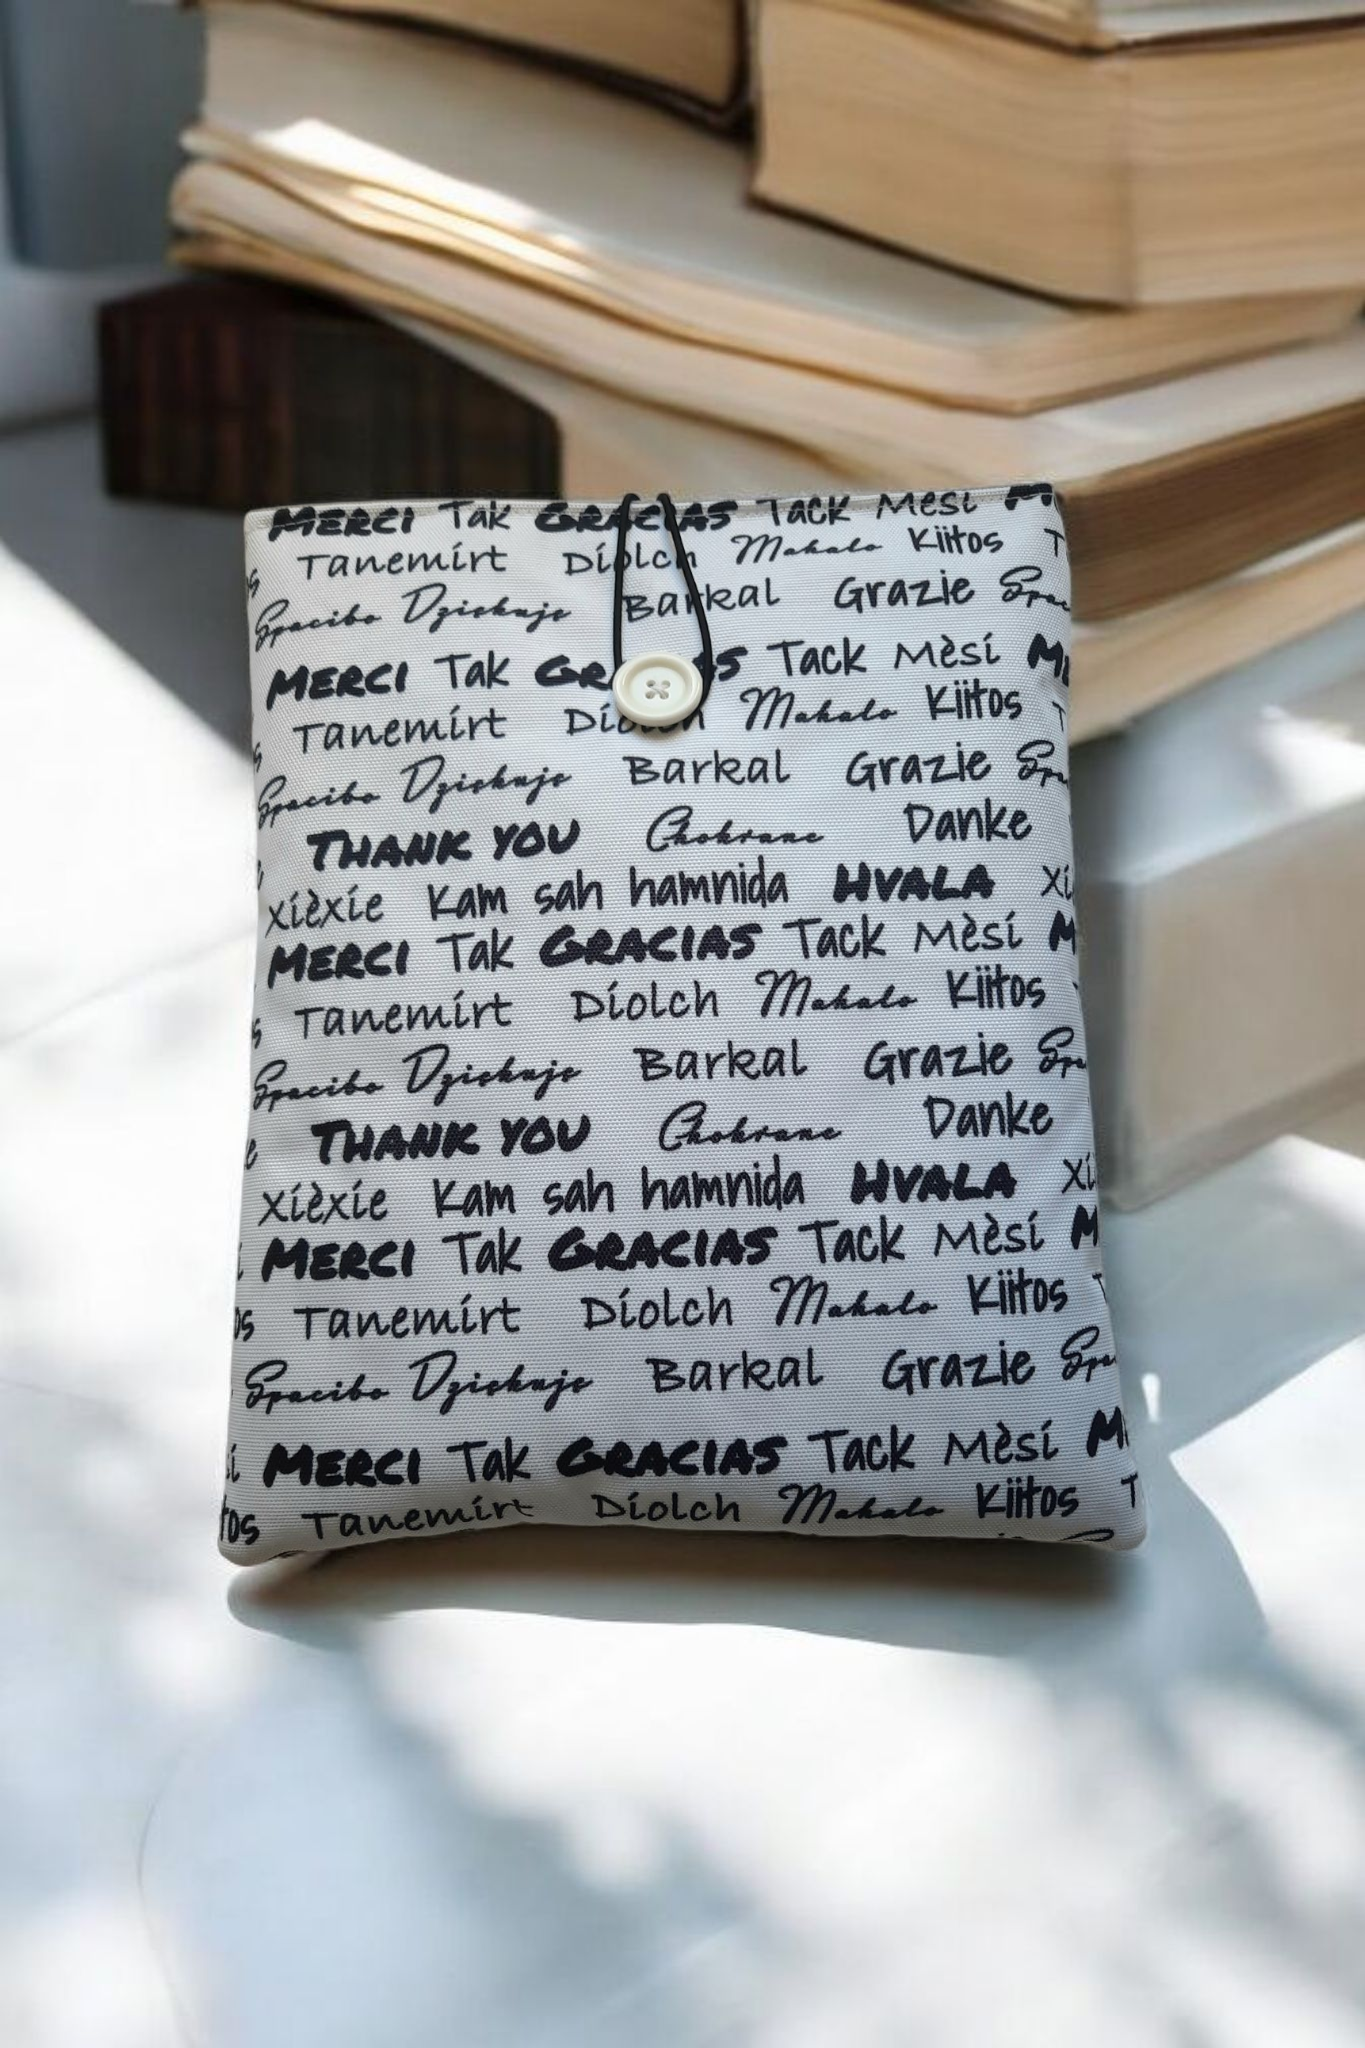 MERCI Tak GRACIAS Tack Mèsi
Tanemirt Diolch Mahalo Kiitos
Spacibo Dziekuje Barkal Grazie
MERCI Tak Tack Mèsí
Tanemírt Mahalo Kiitos
Spacibo Dziekuje Barkal Grazie
THANK YOU Chokrane Danke
Xièxie Kam sah hamnida HVALA
MERCI Tak GRACIAS Tack Mèsí
Tanemírt Díolch Mahalo Kiitos
Spacibo Dziekuje Barkal Grazie
THANK YOU Chokrane Danke
Xièxie Kam sah hamnida HVALA
MERCI Tak GRACIAS Tack Mèsí
Tanemírt Díolch Mahalo Kiitos
Spacibo Dziekuje Barkal Grazie
MERCI Tak GRACIAS Tack Mèsí
Tanemírt Díolch Mahalo Kiitos